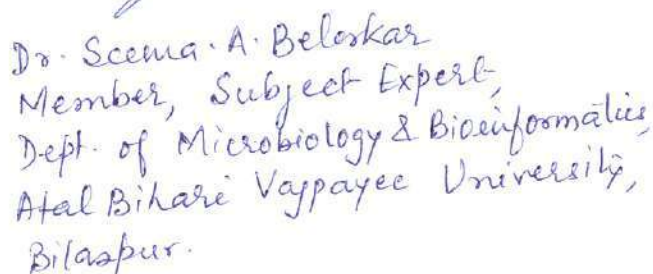 Dr. Seema. A. Belorkar
Member, Subject Expert,
Dept. of Microbiology & Bioinformatics,
Atal Bihari Vajpayee University,
Bilaspur.